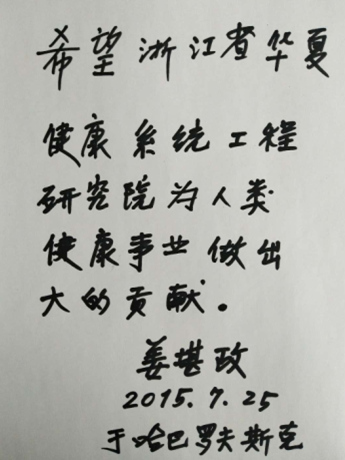 希望浙江省华夏
健康系统工程
研究院为人类
健康事业做出
大的贡献。
姜堪政
2015.7.25
于哈巴罗夫斯克